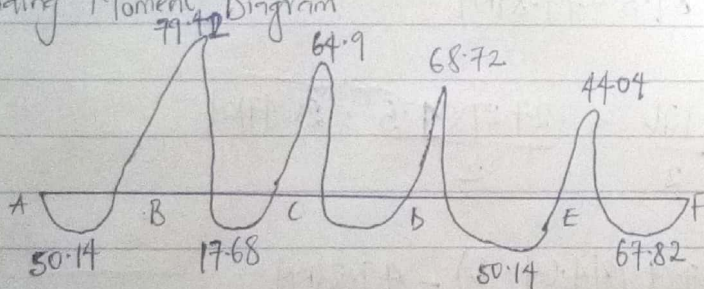 Moment Diagram
79.42
64.9
68.72
44.04
A B C D E F
50.14 17.68 50.14 67.82